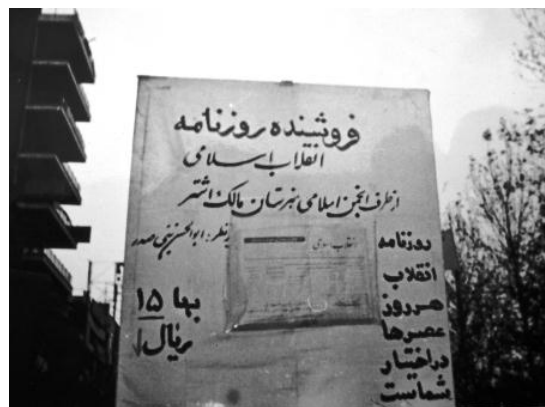 فروشنده روزنامه
انقلاب اسلامی
از طرف انجمن اسلامی هنرستان مالک اشتر
زیر نظر: ابوالحسن بنی صدر
انقلاب اسلامی
بها ۱۵
ریال
روزنامه
انقلاب
هر روز
عصرها
در اختیار
شماست